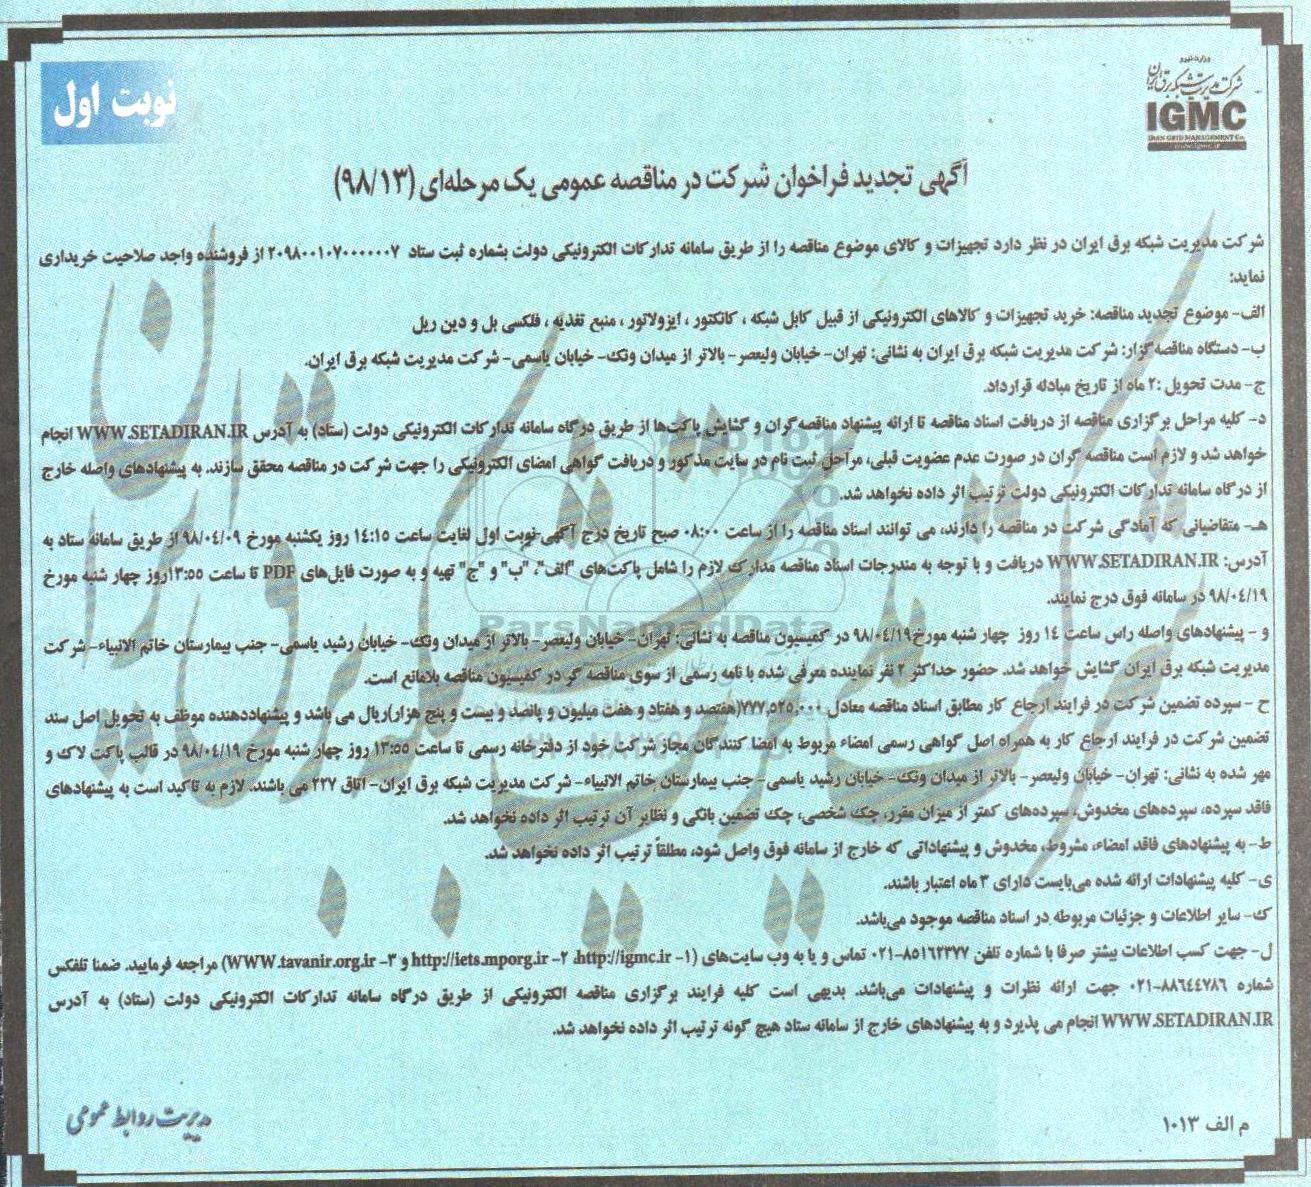 وزارت نیرو
شرکت مدیریت شبکه برق ایران
IGMC
IRAN GRID MANAGEMENT Co.
www.igmc.ir
نوبت اول
آگهی تجدید فراخوان شرکت در مناقصه عمومی یک مرحله‌ای (۹۸/۱۳)
شرکت مدیریت شبکه برق ایران در نظر دارد تجهیزات و کالای موضوع مناقصه را از طریق سامانه تدارکات الکترونیکی دولت بشماره ثبت ستاد ۲۰۹۸۰۰۱۰۷۰۰۰۰۰۰۷ از فروشنده واجد صلاحیت خریداری
نماید:
الف- موضوع تجدید مناقصه: خرید تجهیزات و کالاهای الکترونیکی از قبیل کابل شبکه ، کانکتور ، ایزولاتور ، منبع تغذیه ، فلکسی بل و دین ریل
ب- دستگاه مناقصه گزار: شرکت مدیریت شبکه برق ایران به نشانی: تهران- خیابان ولیعصر- بالاتر از میدان ونک- خیابان یاسمی- شرکت مدیریت شبکه برق ایران.
ج- مدت تحویل :۲ ماه از تاریخ مبادله قرارداد.
د- کلیه مراحل برگزاری مناقصه از دریافت اسناد مناقصه تا ارائه پیشنهاد مناقصه‌گران و گشایش پاکت‌ها از طریق درگاه سامانه تدارکات الکترونیکی دولت (ستاد) به آدرس WWW.SETADIRAN.IR انجام
خواهد شد و لازم است مناقصه گران در صورت عدم عضویت قبلی، مراحل ثبت نام در سایت مذکور و دریافت گواهی امضای الکترونیکی را جهت شرکت در مناقصه محقق سازند. به پیشنهادهای واصله خارج
از درگاه سامانه تدارکات الکترونیکی دولت ترتیب اثر داده نخواهد شد.
هـ- متقاضیانی که آمادگی شرکت در مناقصه را دارند، می توانند اسناد مناقصه را از ساعت ۰۸:۰۰ صبح تاریخ درج آگهی نوبت اول لغایت ساعت ۱۴:۱۵ روز یکشنبه مورخ ۹۸/۰۴/۰۹ از طریق سامانه ستاد به
آدرس: WWW.SETADIRAN.IR دریافت و با توجه به مندرجات اسناد مناقصه مدارک لازم را شامل پاکت‌های "الف"، "ب" و "ج" تهیه و به صورت فایل‌های PDF تا ساعت ۱۳:۵۵روز چهار شنبه مورخ
۹۸/۰۴/۱۹ در سامانه فوق درج نمایند.
و - پیشنهادهای واصله راس ساعت ۱۴ روز چهار شنبه مورخ۹۸/۰۴/۱۹ در کمیسیون مناقصه به نشانی: تهران- خیابان ولیعصر- بالاتر از میدان ونک- خیابان رشید یاسمی- جنب بیمارستان خاتم الانبیاء- شرکت
مدیریت شبکه برق ایران گشایش خواهد شد. حضور حداکثر ۲ نفر نماینده معرفی شده با نامه رسمی از سوی مناقصه گر در کمیسیون مناقصه بلامانع است.
ح - سپرده تضمین شرکت در فرایند ارجاع کار مطابق اسناد مناقصه معادل ۷۷۷,۵۲۵,۰۰۰(هفتصد و هفتاد و هفت میلیون و پانصد و بیست و پنج هزار)ریال می باشد و پیشنهاددهنده موظف به تحویل اصل سند
تضمین شرکت در فرایند ارجاع کار به همراه اصل گواهی رسمی امضاء مربوط به امضا کنندگان مجاز شرکت خود از دفترخانه رسمی تا ساعت ۱۳:۵۵ روز چهار شنبه مورخ ۹۸/۰۴/۱۹ در قالب پاکت لاک و
مهر شده به نشانی: تهران- خیابان ولیعصر- بالاتر از میدان ونک- خیابان رشید یاسمی- جنب بیمارستان خاتم الانبیاء- شرکت مدیریت شبکه برق ایران- اتاق ۲۲۷ می باشند. لازم به تاکید است به پیشنهادهای
فاقد سپرده، سپرده‌های مخدوش، سپرده‌های کمتر از میزان مقرر، چک شخصی، چک تضمین بانکی و نظایر آن ترتیب اثر داده نخواهد شد.
ط- به پیشنهادهای فاقد امضاء، مشروط، مخدوش و پیشنهاداتی که خارج از سامانه فوق واصل شود، مطلقاً ترتیب اثر داده نخواهد شد.
ی- کلیه پیشنهادات ارائه شده می‌بایست دارای ۳ ماه اعتبار باشند.
ک- سایر اطلاعات و جزئیات مربوطه در اسناد مناقصه موجود می‌باشد.
ل- جهت کسب اطلاعات بیشتر صرفا با شماره تلفن ۸۵۱۶۲۳۷۷-۰۲۱ تماس و یا به وب سایت‌های (۱- http://igmc.ir، ۲- http://iets.mporg.ir و ۳- WWW.tavanir.org.ir) مراجعه فرمایید. ضمنا تلفکس
شماره ۸۸۶۴۴۷۸۶-۰۲۱ جهت ارائه نظرات و پیشنهادات می‌باشد. بدیهی است کلیه فرایند برگزاری مناقصه الکترونیکی از طریق درگاه سامانه تدارکات الکترونیکی دولت (ستاد) به آدرس
WWW.SETADIRAN.IR انجام می پذیرد و به پیشنهادهای خارج از سامانه ستاد هیچ گونه ترتیب اثر داده نخواهد شد.
م الف ۱۰۱۳
مدیریت روابط عمومی
ParsNamadData